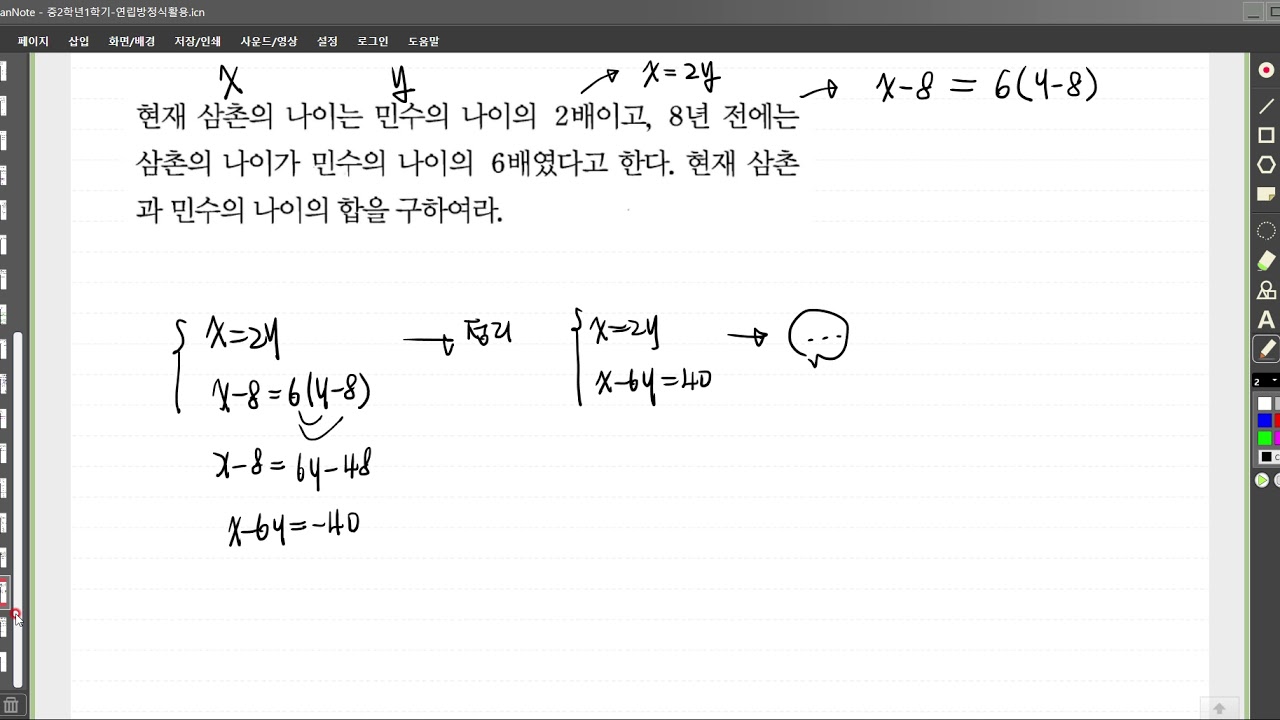 anNote - 중2학년1학기-연립방정식활용.icn
페이지 삽입 화면/배경 저장/인쇄 사운드/영상 설정 로그인 도움말
x y → x = 2y → x-8 = 6(y-8)
현재 삼촌의 나이는 민수의 나이의 2배이고, 8년 전에는
삼촌의 나이가 민수의 나이의 6배였다고 한다. 현재 삼촌
과 민수의 나이의 합을 구하여라.
x=2y → 정리 x=2y → ...
x-8=6(y-8) x-6y=40
x-8=6y-48
x-6y=-40
A
2